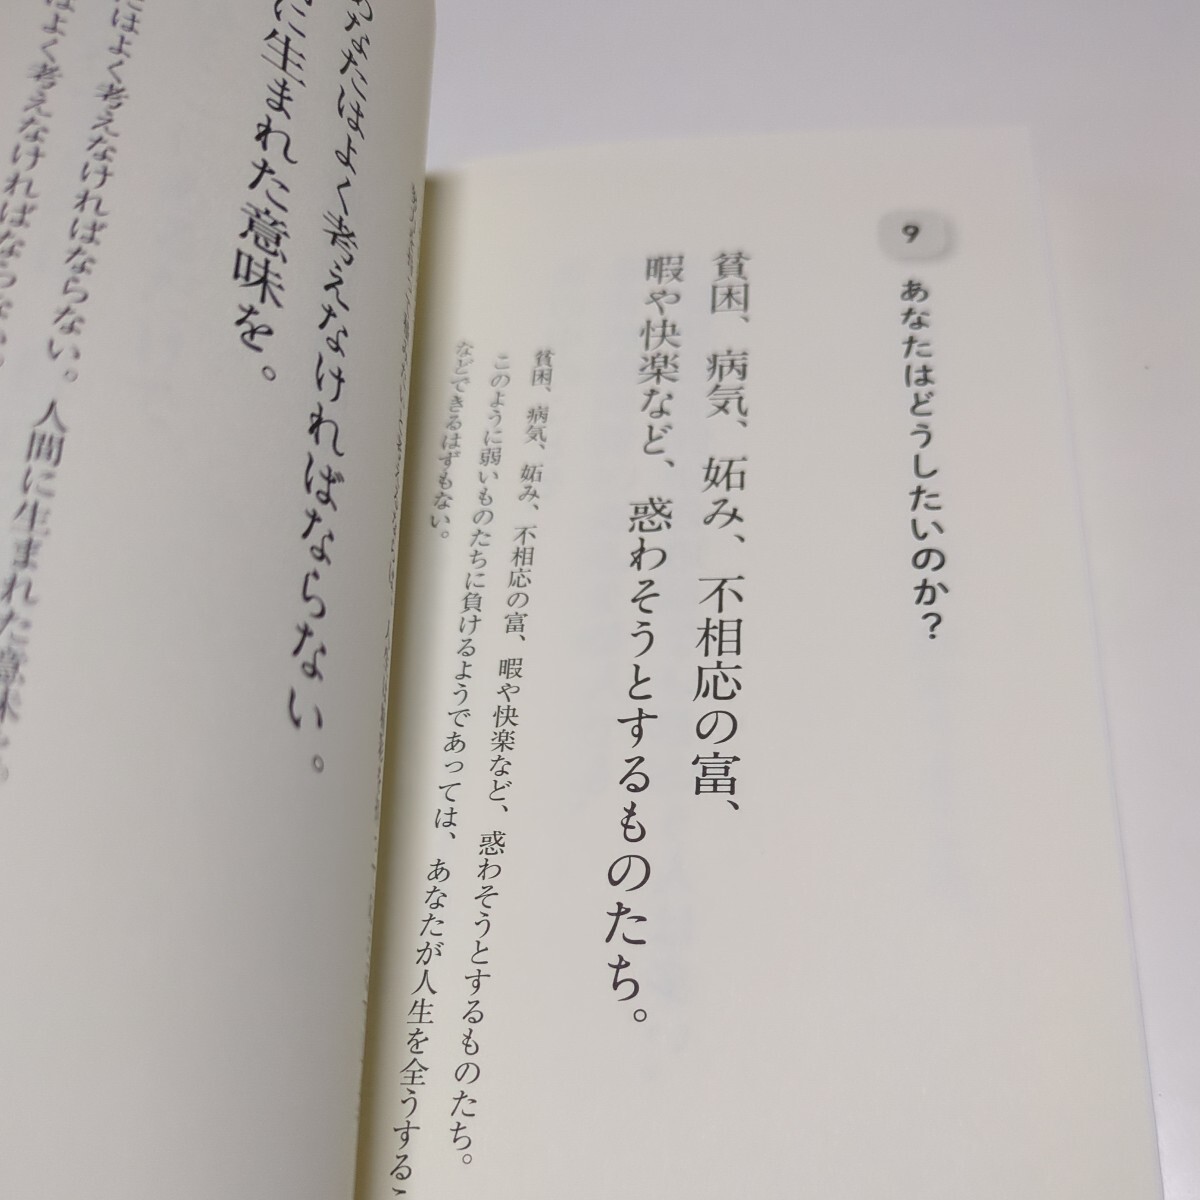 9 あなたはどうしたいのか？
貧困、病気、妬み、不相応の富、
暇や快楽など、惑わそうとするものたち。
貧困、病気、妬み、不相応の富、暇や快楽など、惑わそうとするものたち。
このように弱いものたちに負けるようであっては、あなたが人生を全うするこ
などできるはずもない。
なたはよく考えなければならない。
に生まれた意味を。
はよく考えなければならない。人間に生まれた意味を
はよく考えなければならない。